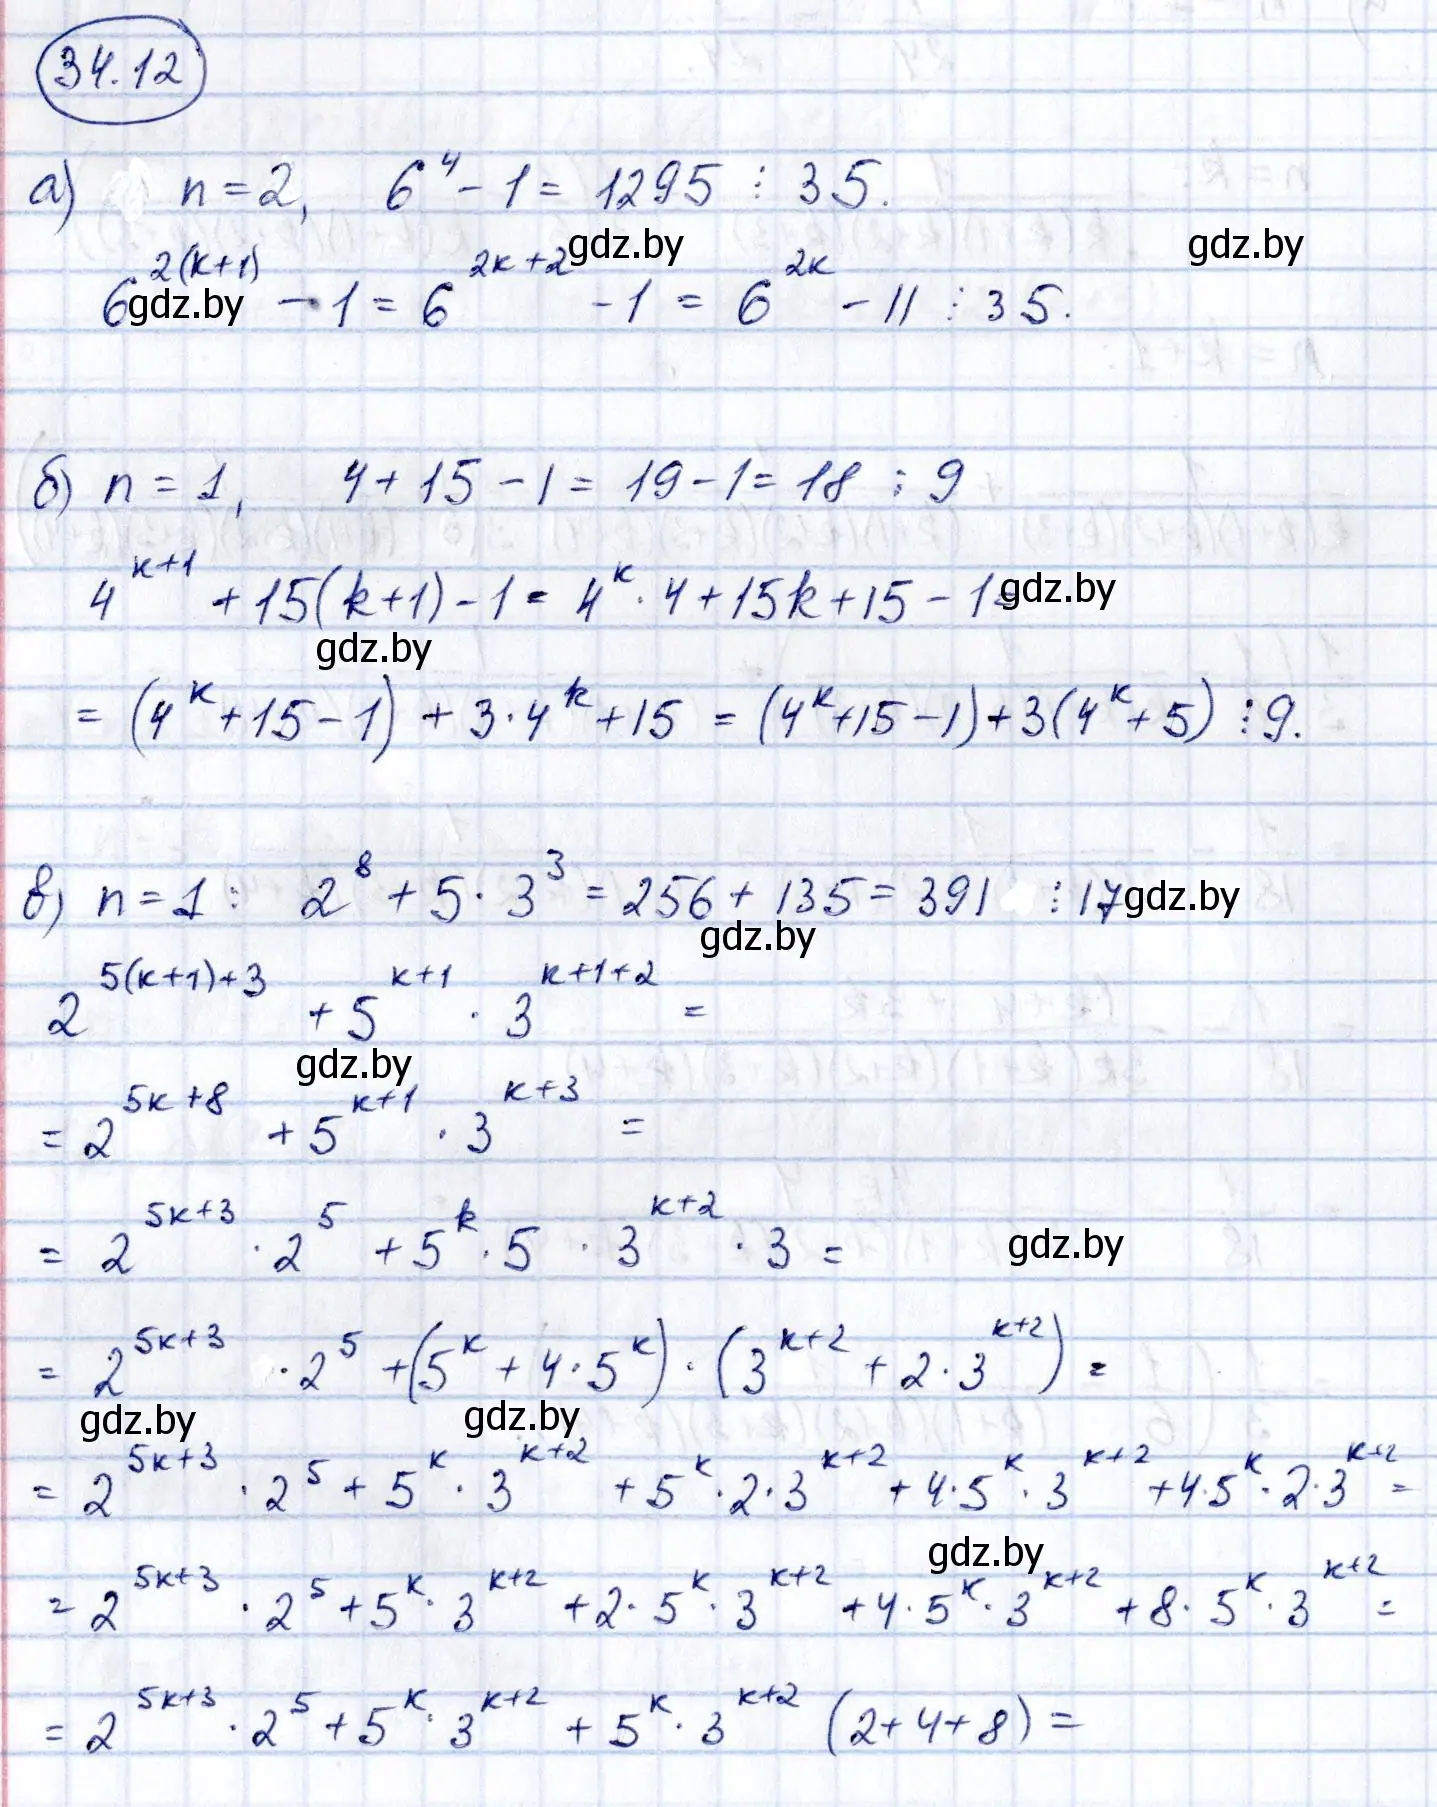 34.12
а) n = 2, 6⁴ - 1 = 1295 ⋮ 35.
gdz.by gdz.by
6^{2(k+1)} - 1 = 6^{2k+2} - 1 = 6^{2k} - 11 ⋮ 35.
gdz.by
б) n = 1, 4 + 15 - 1 = 19 - 1 = 18 ⋮ 9
4^{k+1} + 15(k+1) - 1 = 4^k · 4 + 15k + 15 - 1 =
gdz.by
gdz.by
= (4^k + 15 - 1) + 3 · 4^k + 15 = (4^k + 15 - 1) + 3(4^k + 5) ⋮ 9.
в) n = 1 : 2⁸ + 5 · 3³ = 256 + 135 = 391 ⋮ 17
gdz.by
gdz.by
2^{5(k+1)+3} + 5^{k+1} · 3^{k+1+2} =
gdz.by
= 2^{5k+8} + 5^{k+1} · 3^{k+3} =
= 2^{5k+3} · 2⁵ + 5^k · 5 · 3^{k+2} · 3 =
gdz.by
= 2^{5k+3} · 2⁵ + (5^k + 4 · 5^k) · (3^{k+2} + 2 · 3^{k+2}) =
gdz.by gdz.by
= 2^{5k+3} · 2⁵ + 5^k · 3^{k+2} + 5^k · 2 · 3^{k+2} + 4 · 5^k · 3^{k+2} + 4 · 5^k · 2 · 3^{k+2} =
gdz.by
= 2^{5k+3} · 2⁵ + 5^k · 3^{k+2} + 2 · 5^k · 3^{k+2} + 4 · 5^k · 3^{k+2} + 8 · 5^k · 3^{k+2} =
= 2^{5k+3} · 2⁵ + 5^k · 3^{k+2} + 5^k · 3^{k+2} (2 + 4 + 8) =